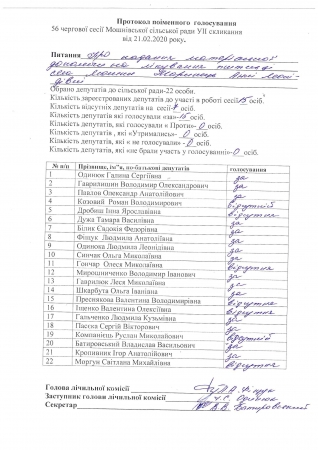 Протокол поіменного голосування
56 чергової сесії Мошнівської сільської ради УІІ скликання
від 21.02.2020 року.
Питання Про надання матеріальної
допомоги на лікування
Обрано депутатів до сільської ради-22 особи.
Кількість зареєстрованих депутатів до участі в роботі сесії 15 осіб.
Кількість відсутніх депутатів на сесії 7 осіб.
Кількість депутатів які голосували «за»- 15 осіб
Кількість депутатів, які голосували « Проти» 0 осіб.
Кількість депутатів, які «Утримались»- 0 осіб.
Кількість депутатів, які « не голосували» - 0 осіб.
Кількість депутатів, які «не брали участь у голосуванні»-0 осіб.
№ п/п Прізвище, ім"я, по-батькові депутатів голосування
1 Одинюк Галина Сергіївна за
2 Гаврилишин Володимир Олександрович за
3 Павлов Олександр Анатолійович за
4 Козовий Роман Володимирович відсутній
5 Дробиш Інна Ярославівна відсутня
6 Дужа Тамара Василівна за
7 Білик Євдокія Федорівна за
8 Фіщук Людмила Анатоліївна за
9 Одинюка Людмила Леонідівна відсутня
10 Сивчак Ольга Миколаївна за
11 Гончар Олеся Миколаївна за
12 Мирошниченко Володимир Іванович за
13 Гаврилюк Леся Миколаївна за
14 Шкарбута Ольга Іванівна за
15 Преснякова Валентина Володимирівна відсутня
16 Іщенко Валентина Олексіївна відсутня
17 Гальченко Людмила Кузьмівна за
18 Пасєка Сергій Вікторович за
19 Компанієць Руслан Миколайович відсутній
20 Батаровський Владислав Васильович за
21 Кропивник Ігор Анатолійович за
22 Моргун Світлана Михайлівна відсутня
Голова лічильної комісії Л.А. Фіщук
Заступник голови лічильної комісії Г.С. Одинюк
Секретар В.В. Батаровський